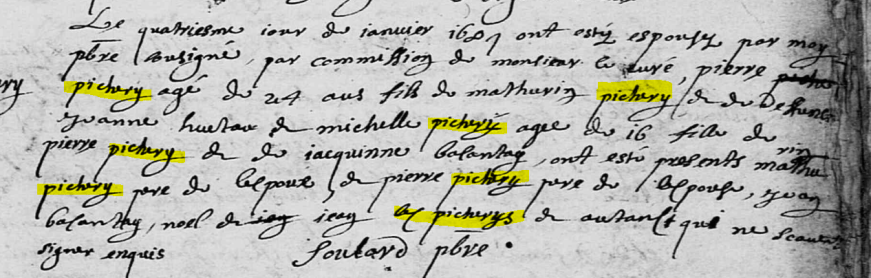 Le quatriesme iour de ianvier 1689 ont estéz espousez par moy
pbre sousigné, par commission de monsieur le curé, pierre
pichery agé de 24 ans fils de mathurin pichery & de deffunte
Jeanne huetau & michelle pichery agee de 16 fille de
pierre pichery & de jacquinne balantay, ont esté presents mathurin
pichery pere de lespoux, & pierre pichery pere de lespouse, jean
balantay, noel & jean les picherys & autaults qui ne scavent
signer enquis Soulard pbre.